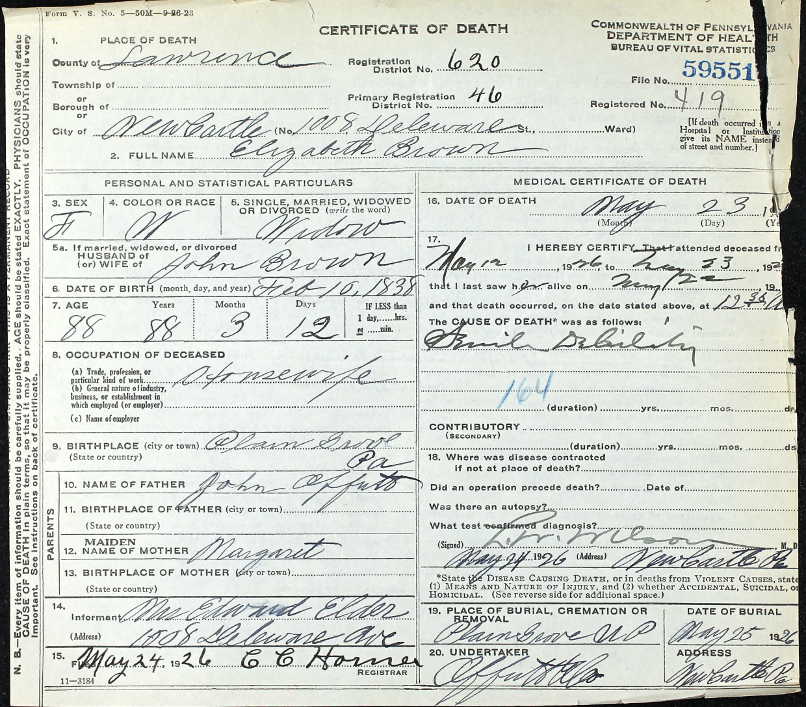 Form V. S. No. 5—50M—9-26-23
CERTIFICATE OF DEATH
COMMONWEALTH OF PENNSYLVANIA
DEPARTMENT OF HEALTH
BUREAU OF VITAL STATISTICS
1. PLACE OF DEATH
County of Lawrence
Registration District No. 620
File No. 59551
Township of
or
Borough of
Primary Registration District No. 46
Registered No. 419
or
City of New Castle (No. 1008 Deleware St., Ward)
[If death occurred in a Hospital or Institution give its NAME instead of street and number.]
2. FULL NAME Elizabeth Brown
PERSONAL AND STATISTICAL PARTICULARS
3. SEX F
4. COLOR OR RACE W
5. SINGLE, MARRIED, WIDOWED OR DIVORCED (write the word) Widow
5a. If married, widowed, or divorced
HUSBAND of
(or) WIFE of John Brown
6. DATE OF BIRTH (month, day, and year) Feb 10, 1838
7. AGE Years Months Days IF LESS than
1 day,......hrs.
or ......min.
88 88 3 12
8. OCCUPATION OF DECEASED
(a) Trade, profession, or particular kind of work Housewife
(b) General nature of industry, business, or establishment in which employed (or employer)
(c) Name of employer
9. BIRTHPLACE (city or town) Plain Grove
(State or country) Pa
PARENTS
10. NAME OF FATHER John Offutt
11. BIRTHPLACE OF FATHER (city or town)
(State or country)
12. MAIDEN NAME OF MOTHER Margaret
13. BIRTHPLACE OF MOTHER (city or town)
(State or country)
14. Informant Mrs Edward Elder
(Address) 1008 Deleware Ave
15. May 24, 1926 C C Horner
REGISTRAR
11—3184
MEDICAL CERTIFICATE OF DEATH
16. DATE OF DEATH May 23
(Month) (Day)
17. I HEREBY CERTIFY, That I attended deceased from
May 12, 1926 to May 23
that I last saw her alive on May 22
and that death occurred, on the date stated above, at 12
The CAUSE OF DEATH* was as follows:
Senile Debility
164
(duration) yrs. mos. ds
CONTRIBUTORY
(SECONDARY)
(duration) yrs. mos. ds
18. Where was disease contracted
if not at place of death?
Did an operation precede death? Date of
Was there an autopsy?
What test confirmed diagnosis?
(Signed) L. W. Wilson M. D.
May 24, 1926 (Address) New Castle Pa
*State the DISEASE CAUSING DEATH, or in deaths from VIOLENT CAUSES, state
(1) MEANS AND NATURE OF INJURY, and (2) whether ACCIDENTAL, SUICIDAL, or
HOMICIDAL. (See reverse side for additional space.)
19. PLACE OF BURIAL, CREMATION OR REMOVAL
Plain Grove U P
DATE OF BURIAL
May 25 1926
20. UNDERTAKER
Offutt & Co
ADDRESS
New Castle Pa
N. B.—Every item of information should be carefully supplied. AGE should be stated EXACTLY. PHYSICIANS should state
CAUSE OF DEATH in plain terms, so that it may be properly classified. Exact statement of OCCUPATION is very
important. See instructions on back of certificate.